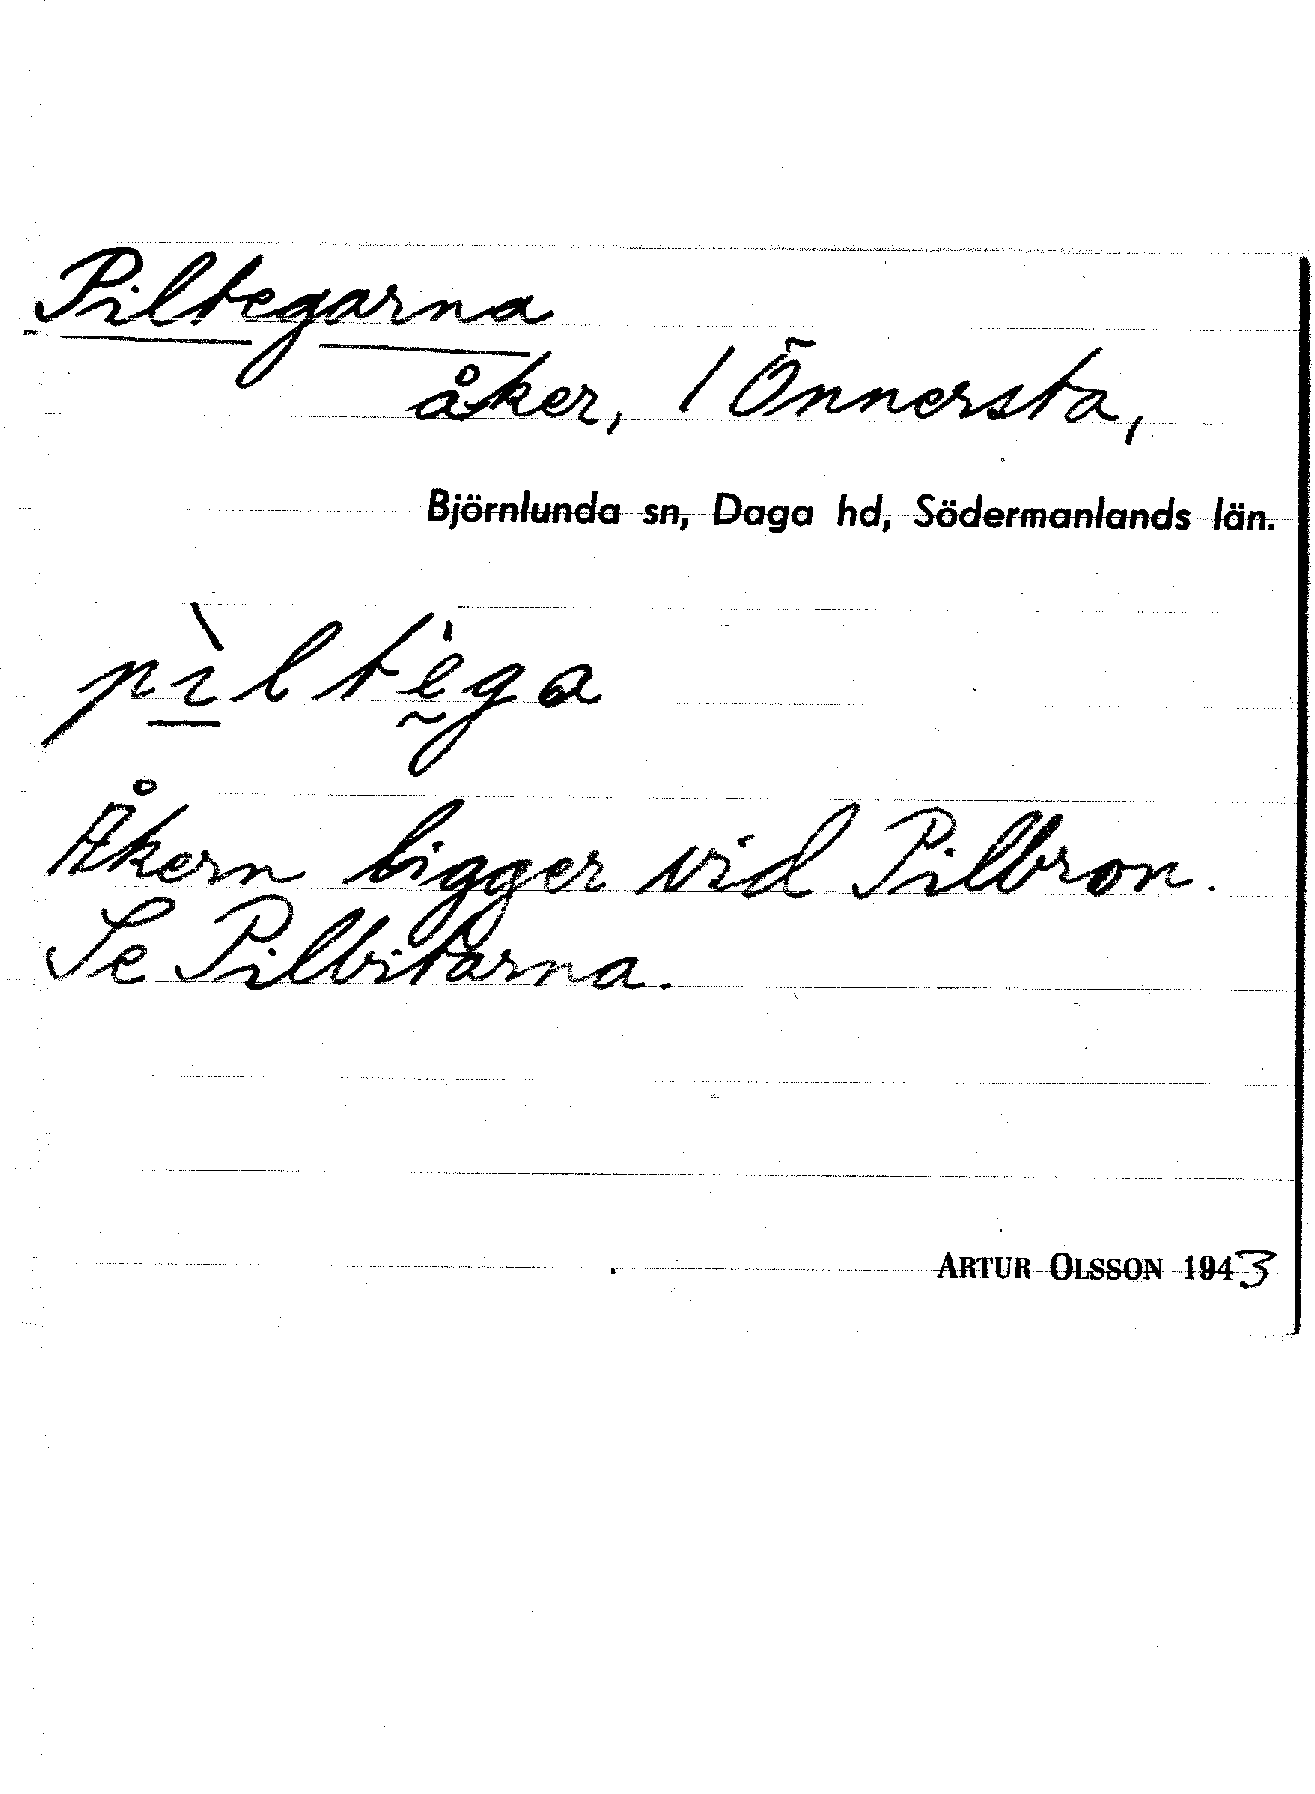 Piltegarna
åker, 1 Önnersta,
Björnlunda sn, Daga hd, Södermanlands län.
pı̱̀ltḛ̀ga
Åkern ligger vid Pilbron.
Se Pilbitarna.
ARTUR OLSSON 1943